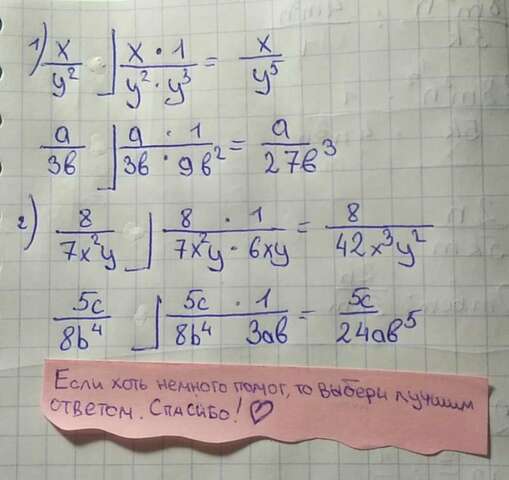 1) x/y² ⌋ x · 1 / y² · y³ = x/y⁵
a/3b ⌋ a · 1 / 3b · 9b² = a/27b³
2) 8/7x²y ⌋ 8 · 1 / 7x²y · 6xy = 8/42x³y²
5c/8b⁴ ⌋ 5c · 1 / 8b⁴ 3ab = 5c/24ab⁵
Если хоть немного помог, то выбери лучшим
ответом. Спасибо! ♡